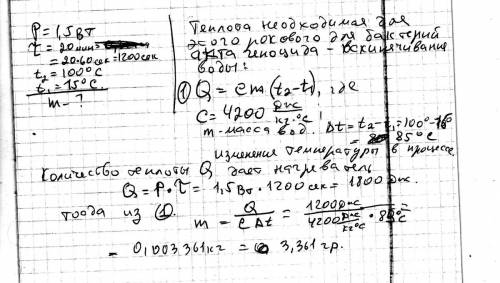 P = 1,5 Вт
τ = 20 мин =
= 20·60 сек = 1200 сек
t₂ = 100°C
t₁ = 15°C.
m - ?
Теплота необходимая для
этого рокового для бактерий
акта геноцида - вскипячивание
воды:
① Q = cm(t₂-t₁), где
C = 4200 Дж/кг·°C
m - масса вод. Δt = t₂-t₁ = 100°-15°
= 85°C
изменение температуры в процессе.
Количество теплоты Q дает нагреватель
Q = P·τ = 1,5 Вт · 1200 сек = 1800 Дж.
тогда из ①.
m = Q/cΔt = 1200 Дж/4200 Дж/кг°C · 85°C =
= 0,003361 кг = 3,361 гр.